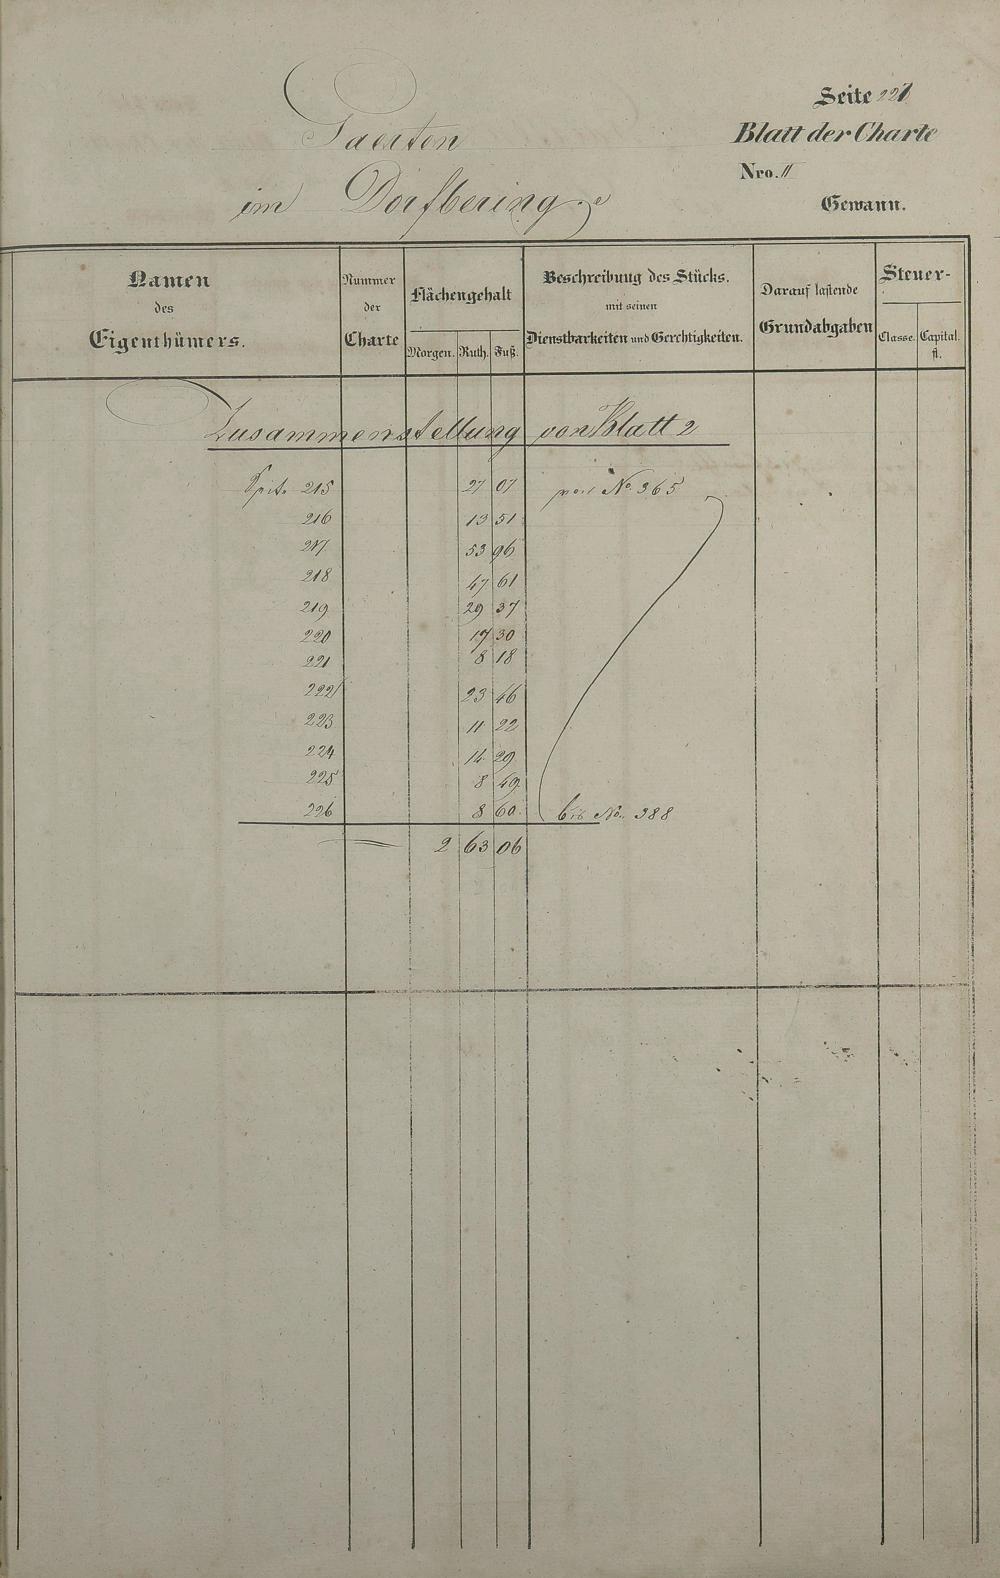 Seite 227
Blatt der Charte
Nro. II
Gewann.
Gaerten
im Dorfberinge
Namen des Eigenthümers.
Nummer der Charte
Flächengehalt
Morgen. Ruth. Fuß.
Beschreibung des Stücks. mit seinen Dienstbarkeiten und Gerechtigkeiten.
Darauf lastende Grundabgaben
Steuer-
Classe. Capital. fl.
Zusammenstellung von Blatt 2
Seite 215 27 07 von No. 365
216 13 51
217 53 96
218 47 61
219 29 37
220 17 30
221 8 18
222 23 46
223 11 22
224 14 29
225 8 49
226 8 60 bis No. 388
2 63 06